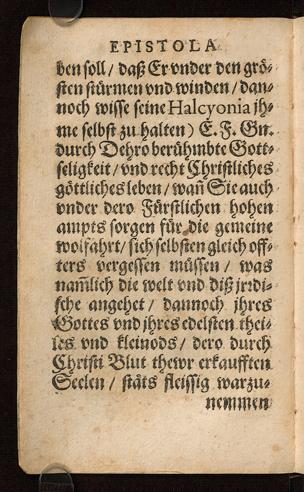 EPISTOLA
ben soll / daß Er vnder den grö-
sten stürmen vnd winden / dan-
noch wisse seine Halcyonia jh-
me selbst zu halten) E. F. Gn.
durch Dehro berühmbte Gott-
seligkeit / vnd recht Christliches
göttliches leben / wañ Sie auch
vnder dero Fürstlichen hohen
ampts sorgen für die gemeine
wolfahrt / sich selbsten gleich off-
ters vergessen müssen / was
nam̃lich die welt vnd diß jrdi-
sche angehet / dannoch jhres
Gottes vnd jhres edelsten thei-
les vnd kleinods / dero durch
Christi Blut thewr erkaufften
Seelen / stäts fleissig warzu-
nemmen